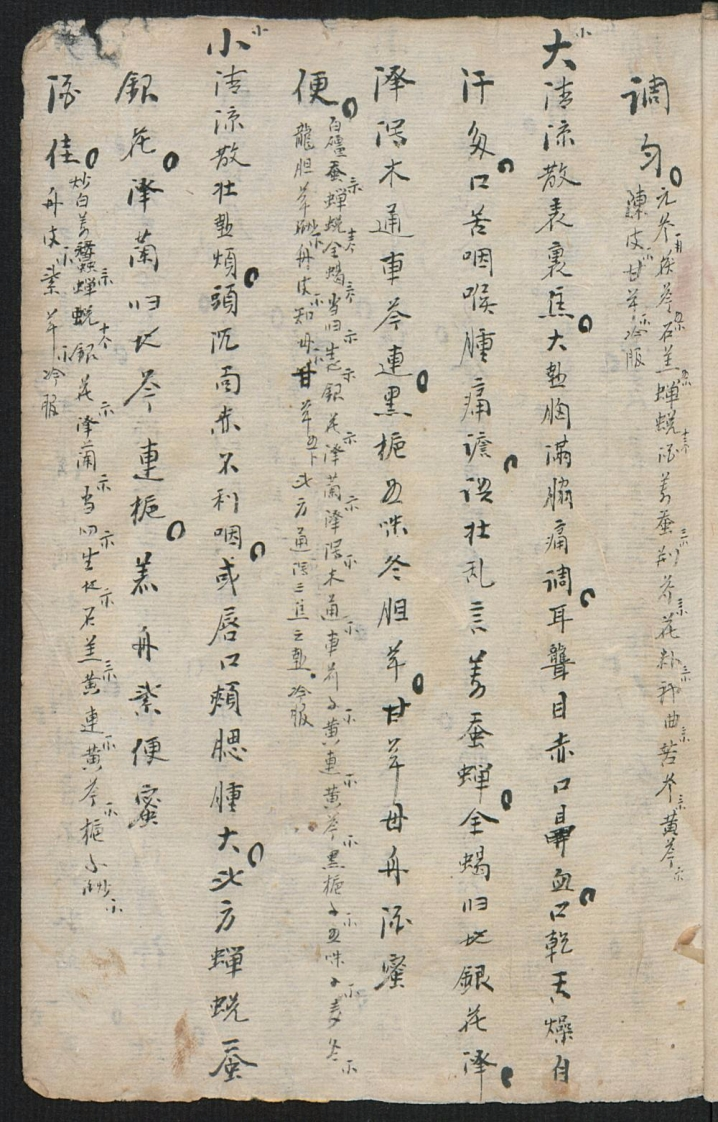 调匀
元参 茯苓 石羔 蝉蜕 酒 姜蚕 荆芥 花粉 神曲 苦参 黄芩
陳皮 甘草 冷服
大清凉散表裏焦大热胸满腸痛调耳聾目赤口鼻血口乾舌燥自
汗多口苦咽喉腫痛讝语壮乱言姜蚕蝉全蝎归地銀花澤
泽泻木通車芩連黑栀五味冬胆草甘草母丹酒蜜
便
白殭蚕 蝉蜕 全蝎 当归 生地 銀花 泽蘭 泽泻 木通 車前子 黄連 黄芩 黑栀子 五味子 麦冬
龍胆草 丹皮 知母 甘草 此方通泻三焦之热 冷服
小清凉散壮热煩頭沉面赤不利咽或唇口頰腮腫大此方蝉蜕蚕
銀花澤蘭归地芩連栀羔丹紫便蜜
酒佳
炒白姜蠶 蝉蜕 銀花 泽蘭 当归 生地 石羔 黄連 黄芩 栀子
丹皮 紫草 冷服